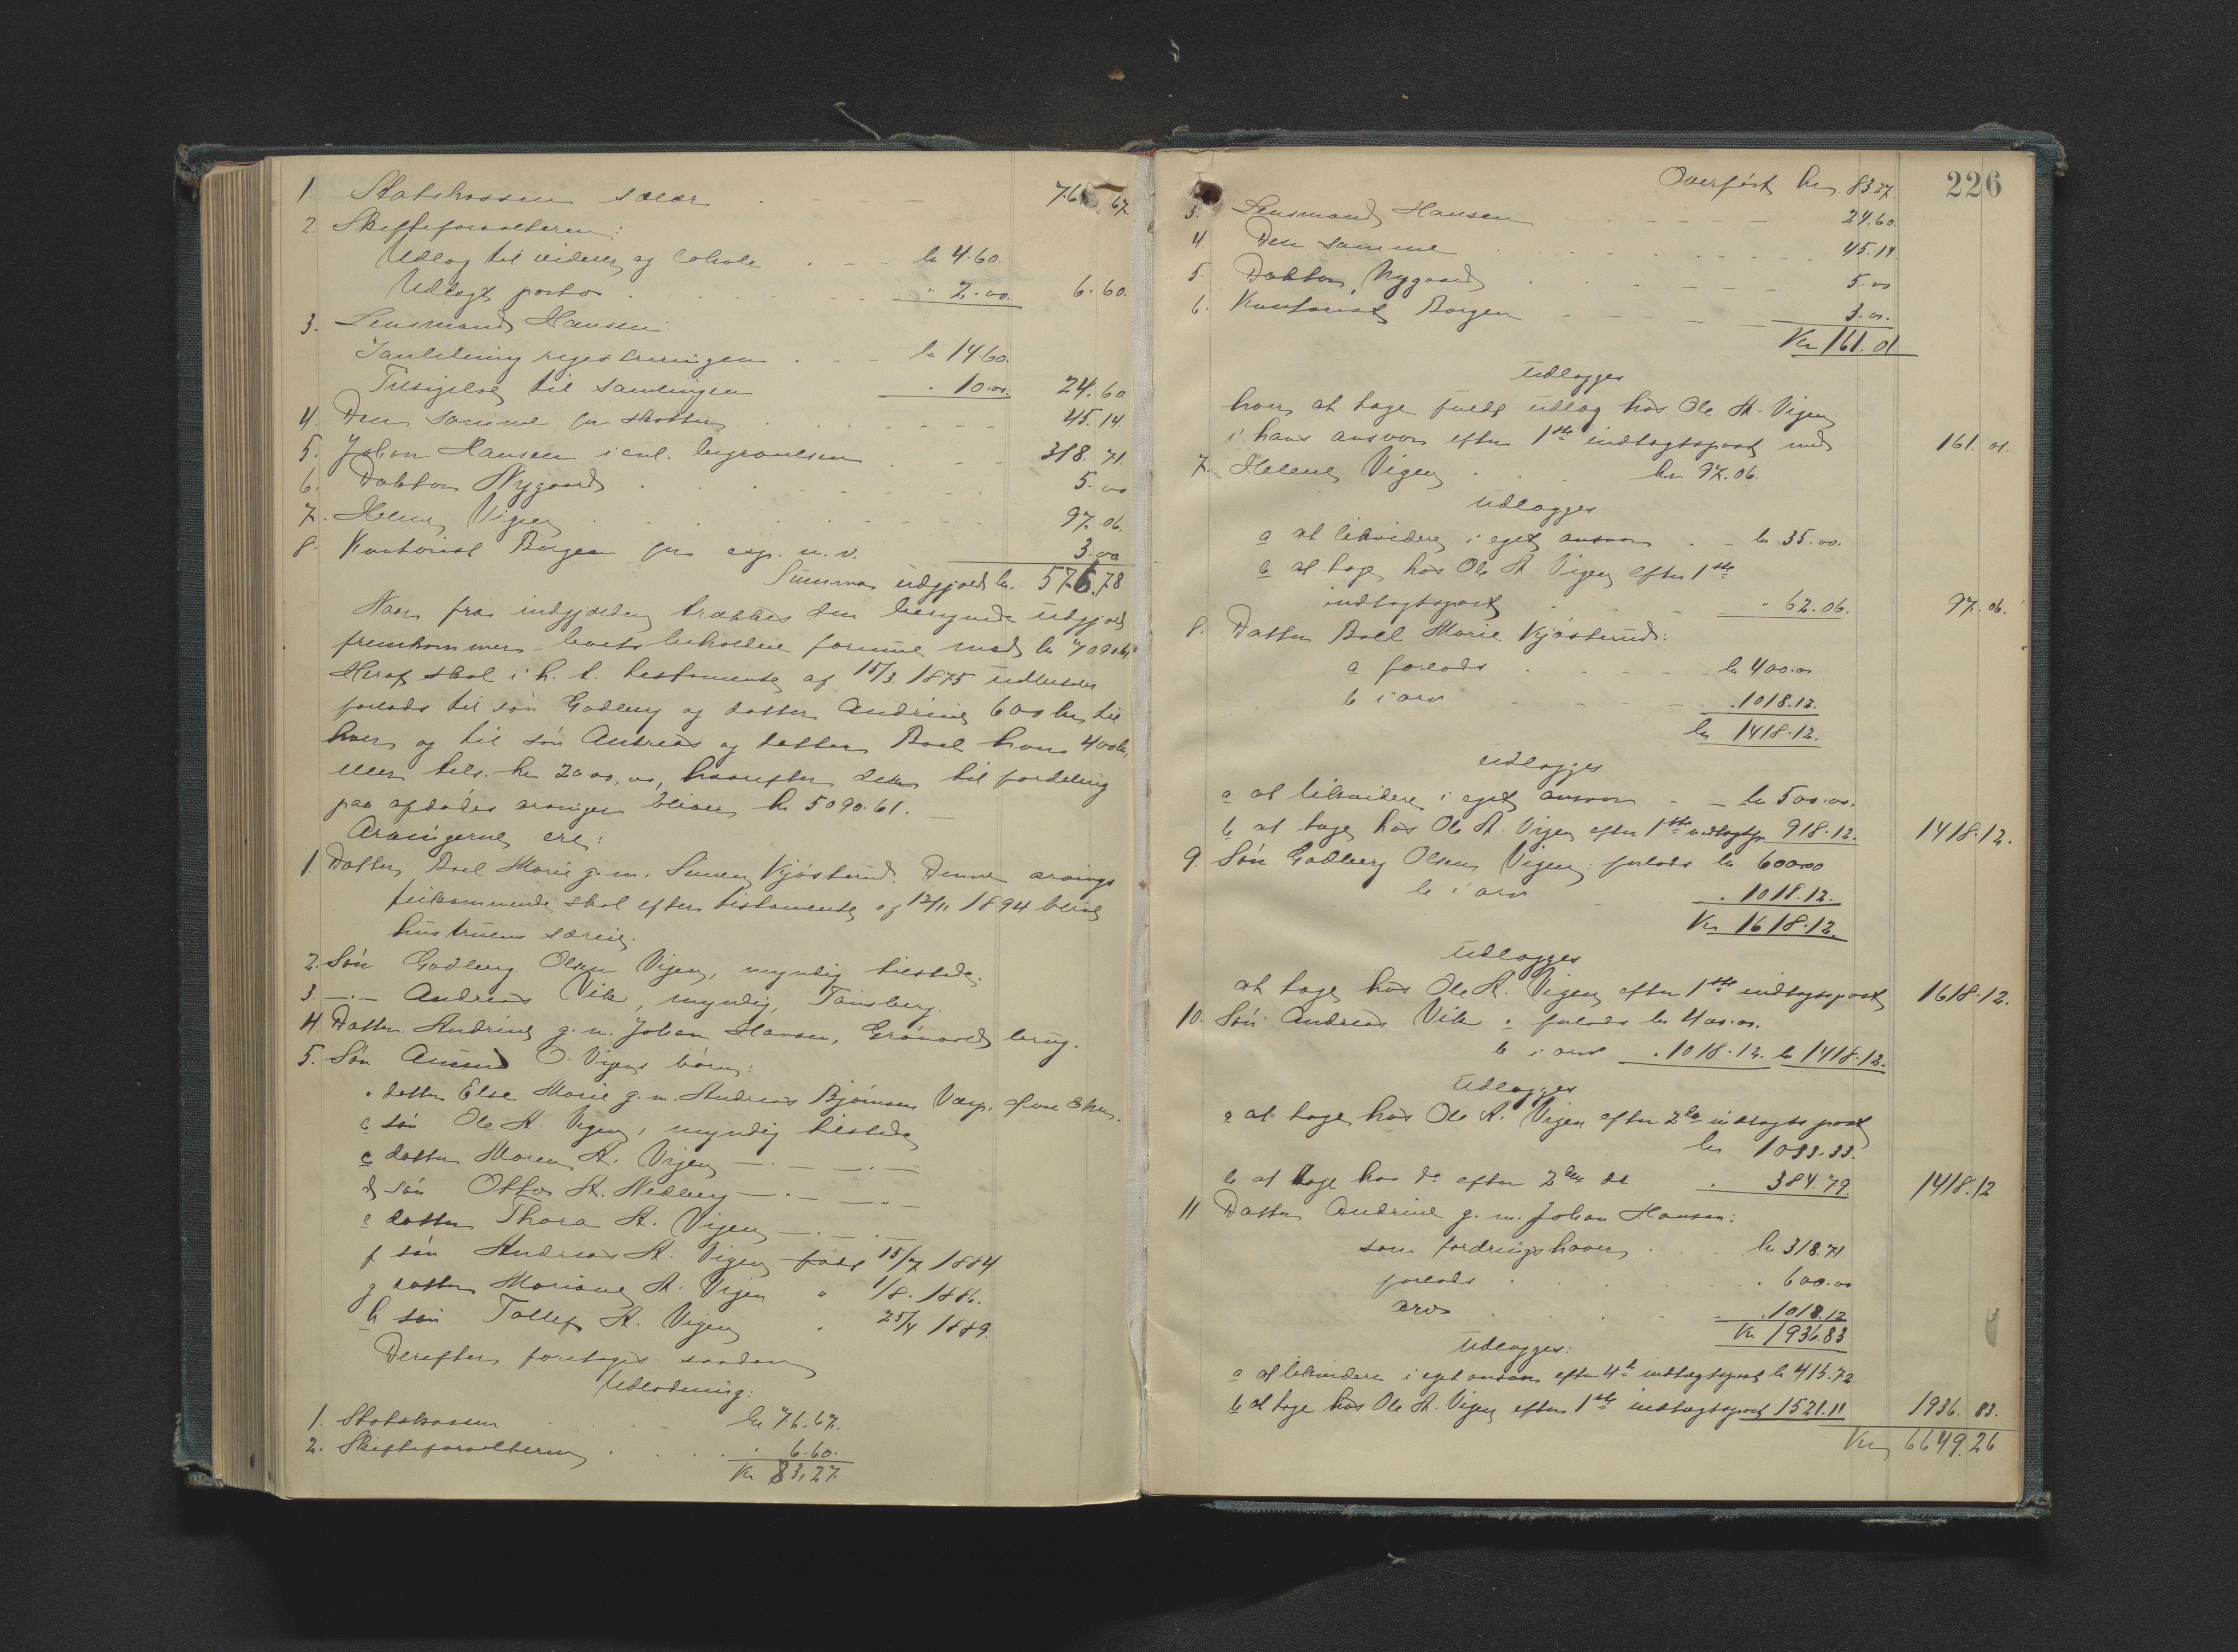 1. Statskassen salær 76 67.
2. Skifteforvalteren:
Udlæg til videre og lokale kr 4.60.
Udlagt porto " 2.00. 6.60.
3. Lensmand Hansen:
Samling registreringen kr 14.60.
Tilsigelse til samlingen " 10.00. 24.60
4. Den samme for skatter 45.14.
5. Johan Hansen incl. begravelsen 318.71.
6. Doktor Nygaard 5.00
7. Helene Vigen 97.06.
8. Kontorist Borgen for exp. m.v. 3.00
Summa udgjæld kr. 576.78
Naar fra indgjælden trækkes den udgjæld
fremkommer boets beholdne formue med kr 7090.61
Heraf skal i h. t. testamente af 15/3 1875 udluddes
forlods til søn Godberg og datter Andrine 600 kr til
hver og til søn Andreas og datter Boel hver 400 kr,
eller tils. kr 2000,00, hvorefter der til fordeling
paa afdødes arvinger bliver kr 5090.61.
Arvingerne ere:
1. Datter Boel Marie g. m. Simen Kjøsterud. Denne arvings
tilkommende skal efter testamente af 12/11 1894 blive
hustruens særeie.
2. Søn Godberg Olsen Vigen, myndig tilstede.
3. -"- Andreas Vik, myndig, Tønsberg.
4. Datter Andrine g. m. Johan Hansen, Grønvold brug.
5. Søn Amund O. Vigens børn:
a datter Else Marie g. m. Andreas Bjørnsen Værp,
b søn Ole A. Vigen, myndig tilstede
c datter Maren A. Vigen -"- -"-
d søn Otto A. Nedberg -"- -"-
e datter Thora A. Vigen -"- -"-
f søn Andreas A. Vigen født 15/7 1884
g datter Mariane A. Vigen " 1/8. 1886.
h søn Tollef A. Vigen " 25/4 1889.
Derefter foretages saadan
Udlodning:
1. Statskassen kr 76.67.
2. Skifteforvalteren " 6.60.
Kr 83,27.
226
Overført kr 83.27.
3. Lensmand Hansen 24.60.
4 Den samme 45.14
5. Doktor Nygaard 5.00
6. Kontorist Borgen 3.00.
Kr 161.01
Udlægges
hver at tage fuldt udlæg hos Ole A. Vigen
i hans ansvar efter 1ste indtægtspost med 161.01.
7. Helene Vigen kr 97.06.
Udlægges
a at likvidere i eget ansvar kr 35.00.
b at tage hos Ole A. Vigen efter 1ste
indtægtspost " 62.06. 97.06.
8. Datter Boel Marie Kjøsterud:
a forlods kr 400.00
b i arv " 1018.12.
kr 1418.12.
Udlægges
a at likvidere i eget ansvar kr 500.00.
b at tage hos Ole A. Vigen efter 1ste indtægtsp. 918.12. 1418.12.
9. Søn Godberg Olsen Vigen: forlods kr 600.00
b i arv " 1018.12.
Kr 1618.12.
Udlægges
at tage hos Ole A. Vigen efter 1ste indtægtspost 1618.12.
10. Søn Andreas Vik a forlods kr 400.00.
b i arv " 1018.12. kr 1418.12.
Udlægges
a at tage hos Ole A. Vigen efter 2den indtægtspost
kr 1033.33.
b at tage hos do efter do " 384.79. 1418.12
11 Datter Andrine g. m. Johan Hansen:
som fordringshaver kr 318.71
forlods " 600.00
arv " 1018.12
Kr 1936.83
Udlægges:
a at likvidere i eget ansvar efter 4de indtægtspost kr 415.72
b at tage hos Ole A. Vigen efter 1ste indtægtspost 1521.11 1936.83.
Kr 6649.26